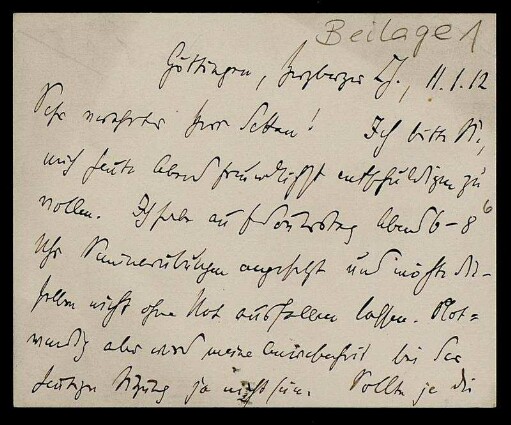 Beilage 1
Göttingen, Herzberger Ch., 11.1.12
Sehr verehrter Herr Dekan! Ich bitte Sie,
mich heute Abend freundlichst entschuldigen zu
wollen. Ich habe auf Donnerstag Abend 6-8
Uhr Seminarübungen angesetzt und möchte die-
selben nicht ohne Not ausfallen lassen. Not-
wendig aber wird meine Anwesenheit bei der
heutigen Sitzung ja nicht sein. Sollte je die